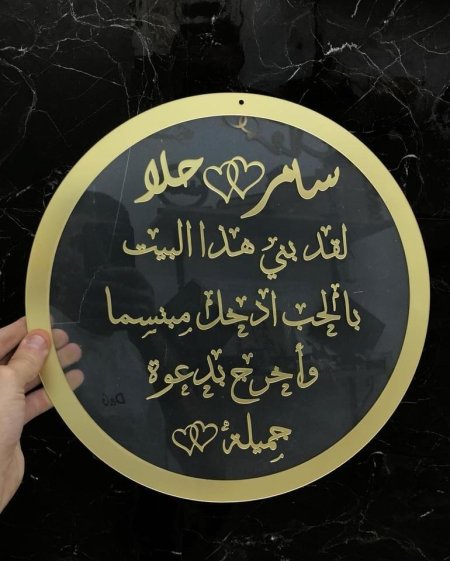 سامر حلا
لقد بني هذا البيت
بالحب ادخل مبتسما
وأخرج بدعوة
جميلة